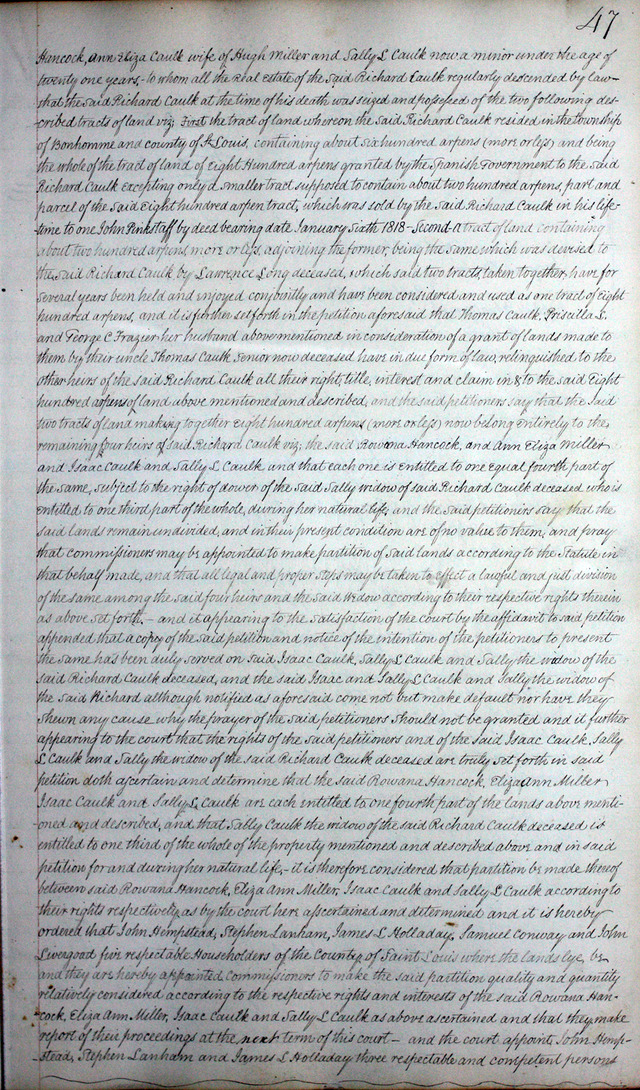 47
Hancock, Ann Eliza Caulk wife of Hugh Miller and Sally L Caulk now a minor under the age of
twenty one years,- to whom all the real estate of the said Richard Caulk regularly descended by law-
that the said Richard Caulk at the time of his death was seized and possessed of the two following des-
-cribed tracts of land viz; First the tract of land whereon the said Richard Caulk resided in the township
of Bonhomme and county of St Louis, containing about six hundred arpens (more or less) and being
the whole of the tract of land of Eight Hundred arpens granted by the Spanish Government to the said
Richard Caulk Excepting only a smaller tract supposed to contain about two hundred arpens, part and
parcel of the said Eight hundred arpen tract, which was sold by the said Richard Caulk in his life-
time to one John Pinkstaff by deed bearing date January sixth 1818- Second- a tract of land containing
about two hundred arpens more or less, adjoining the former, being the same which was devised to
the said Richard Caulk by Lawrence Long deceased, which said two tracts, taken together, have for
several years been held and injoyed conjointly and have been considered and used as one tract of Eight
hundred arpens, and it is further set forth in the petition aforesaid that Thomas Caulk, Priscilla L.
and George C Frazier her husband above mentioned in consideration of a grant of lands made to
them by their uncle Thomas Caulk Senior now deceased have in due form of law, relinquished to the
other heirs of the said Richard Caulk all their right, title, interest and claim in & to the said Eight
hundred arpens of land above mentioned and described, and the said petitioners say that the said
two tracts of land making together Eight hundred arpens (more or less) now belong entirely to the
remaining four heirs of said Richard Caulk viz; the said Rowana Hancock, and Ann Eliza Miller
and Isaac Caulk and Sally L Caulk and that each one is entitled to one equal fourth part of
the same, subject to the right of dower of the said Sally widow of said Richard Caulk deceased who is
entitled to one third part of the whole, during her natural life; and the said petitioners say that the
said lands remain undivided, and in their present condition are of no value to them, and pray
that commissioners may be appointed to make partition of said lands according to the Statute in
that behalf made, and that all legal and proper steps may be taken to effect a lawful and just division
of the same among the said four heirs and the said widow according to their respective rights therein
as above set forth.- and it appearing to the satisfaction of the court by the affidavit to said petition
appended that a copy of the said petition and notice of the intention of the petitioners to present
the same has been duly served on said Isaac Caulk, Sally L Caulk and Sally the widow of the
said Richard Caulk deceased, and the said Isaac and Sally L Caulk and Sally the widow of
the said Richard although notified as aforesaid come not but make default nor have they
shewn any cause why the prayer of the said petitioners should not be granted and it further
appearing to the court that the rights of the said petitioners and of the said Isaac Caulk, Sally
L Caulk and Sally the widow of the said Richard Caulk deceased are truly set forth in said
petition doth ascertain and determine that the said Rowana Hancock, Eliza Ann Miller
Isaac Caulk and Sally L Caulk are each entitled to one fourth part of the lands above menti-
-oned and described, and that Sally Caulk the widow of the said Richard Caulk deceased is
entitled to one third of the whole of the property mentioned and described above and in said
petition for and during her natural life,- it is therefore considered that partition be made thereof
between said Rowana Hancock, Eliza Ann Miller, Isaac Caulk and Sally L Caulk according to
their rights respectively as by the court here ascertained and determined and it is hereby
ordered that John Hempstead, Stephen Lanham, James L Holladay, Samuel Conway and John
Livergood five respectable Householders of the County of Saint Louis where the lands lye, be
and they are hereby appointed Commissioners to make the said partition quality and quantity
relatively considered according to the respective rights and interests of the said Rowana Han-
-cock, Eliza Ann Miller, Isaac Caulk and Sally L Caulk as above ascertained and that they make
report of their proceedings at the next term of this court- and the court appoint John Hemp-
-stead, Stephen Lanham and James L Holladay three respectable and competent persons